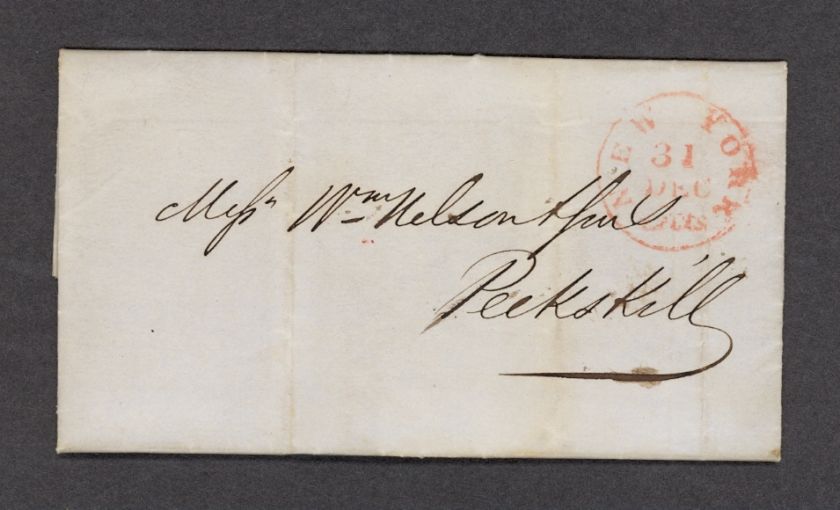 NEW YORK
31
DEC
5 cts
Messrs Wm Nelson & Sons
Peekskill